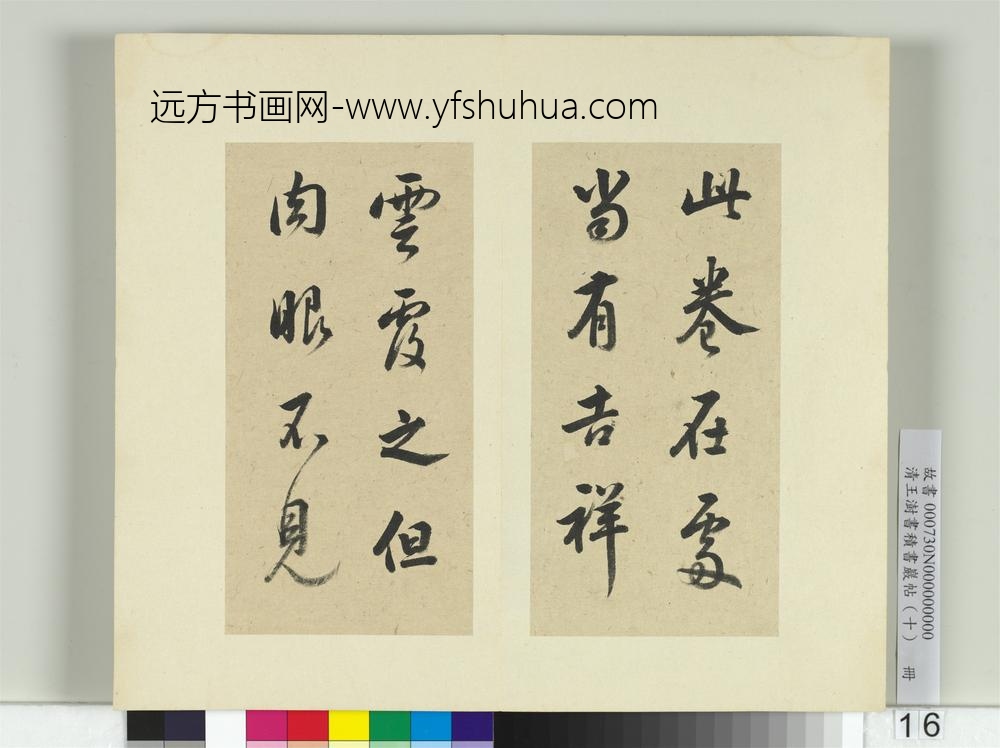 远方书画网-www.yfshuhua.com
此卷在處
當有吉祥
雲霞之但
肉眼不見
故書 000730N000000000
清王澍書積書巖帖（十） 冊
16